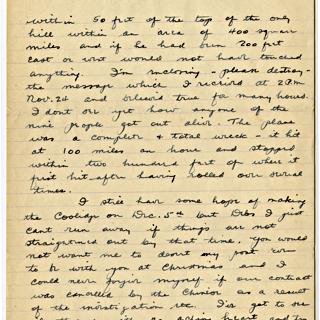 within 50 feet of the top of the only
hill within an area of 400 square
miles and if he had been 200 feet
east or west would not have touched
anything. I'm enclosing - please destroy -
the message which I received at 2 P.M.
Nov. 24 and believed true for many hours.
I don't see yet how anyone of the
nine people got out alive. The plane
was a complete & total wreck - it hit
at 100 miles an hour and stopped
within two hundred feet of where it
first hit after having rolled over several
times.
I still have some hope of making
the Coolidge on Dec. 5th but Debs I just
cant run away if things are not
straightened out by that time. You would
not want me to desert my post even
to be with you at Christmas and I
could never forgive myself if our contract
was cancelled by the Chinese as a result
of the investigation etc. I've got to see